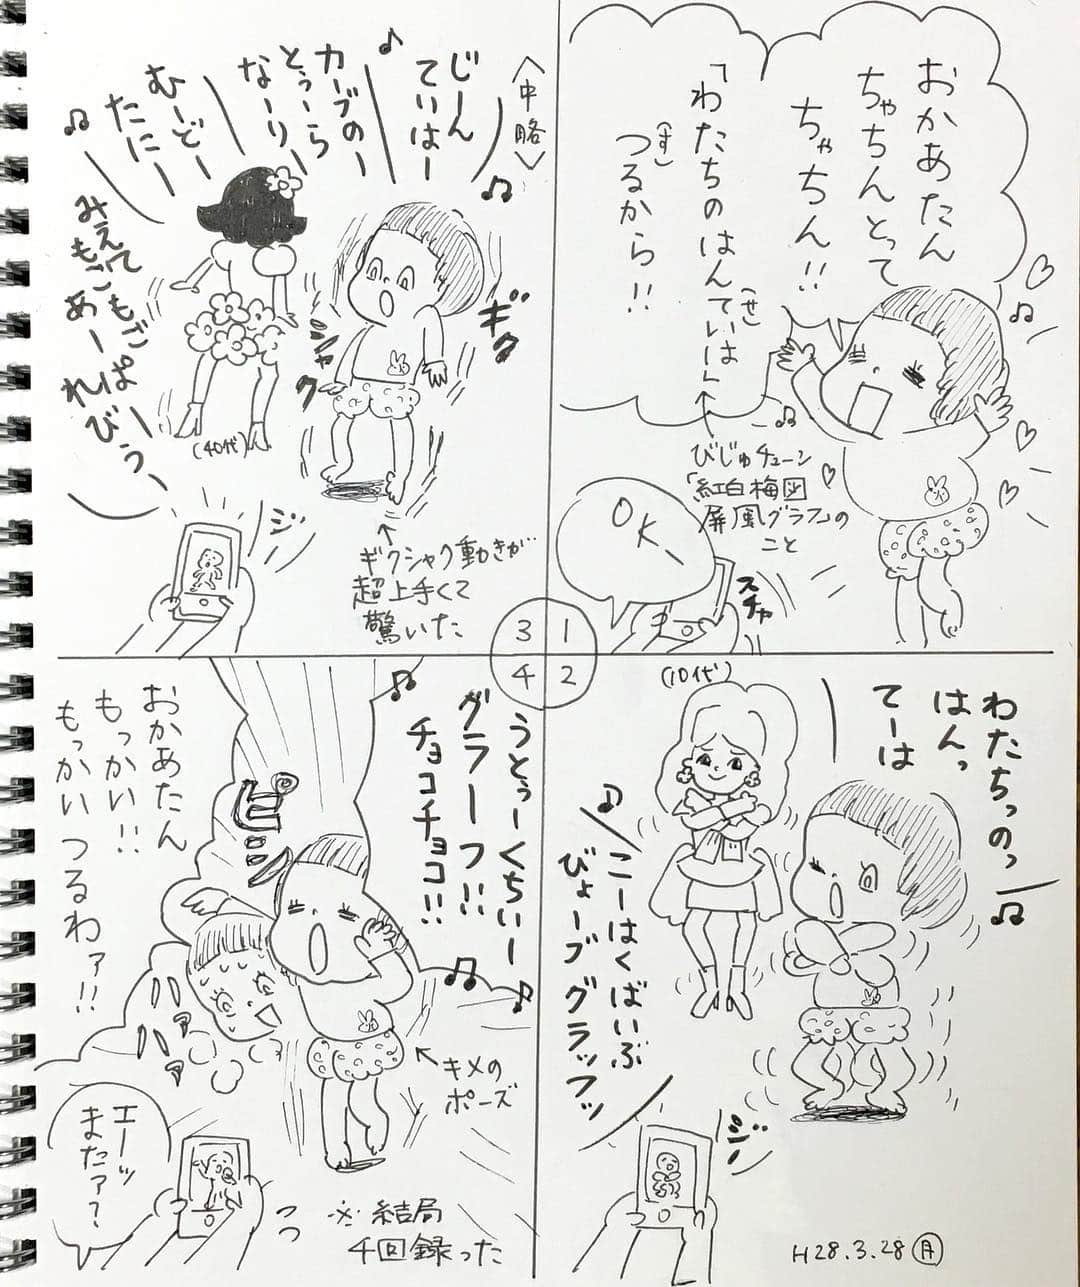 おかあたん
ちゃちんとって
ちゃちん!!
「わたちのはんていは」
(せ)
つるから!!
(す)
びじゅチューン
「紅白梅図
屏風グラフ」の
こと
OK
スチャ
1
2
3
4
わたちっのっ
はんっ
てーは
(10代)
こーはくばいぶ
びょーブグラッフッ
ジー
H28.3.28(月)
<中略>
じーん
ていはー
カーブのー
とぅーら
なーりー
むーどー
たにー
みえて
もごもご
あーぱー
れびぅ
(40代)
ギク
シャク
ジー
ギクシャク動きが
超上手くて
驚いた
うとぅーくちぃー
グラーフ!!
チョコチョコ!!
ピーン
キメの
ポーズ
おかあたん
もっかい!!
もっかいつるわァ!!
ハァ
ハァ
エーッ
またァ?
※結局
4回録った